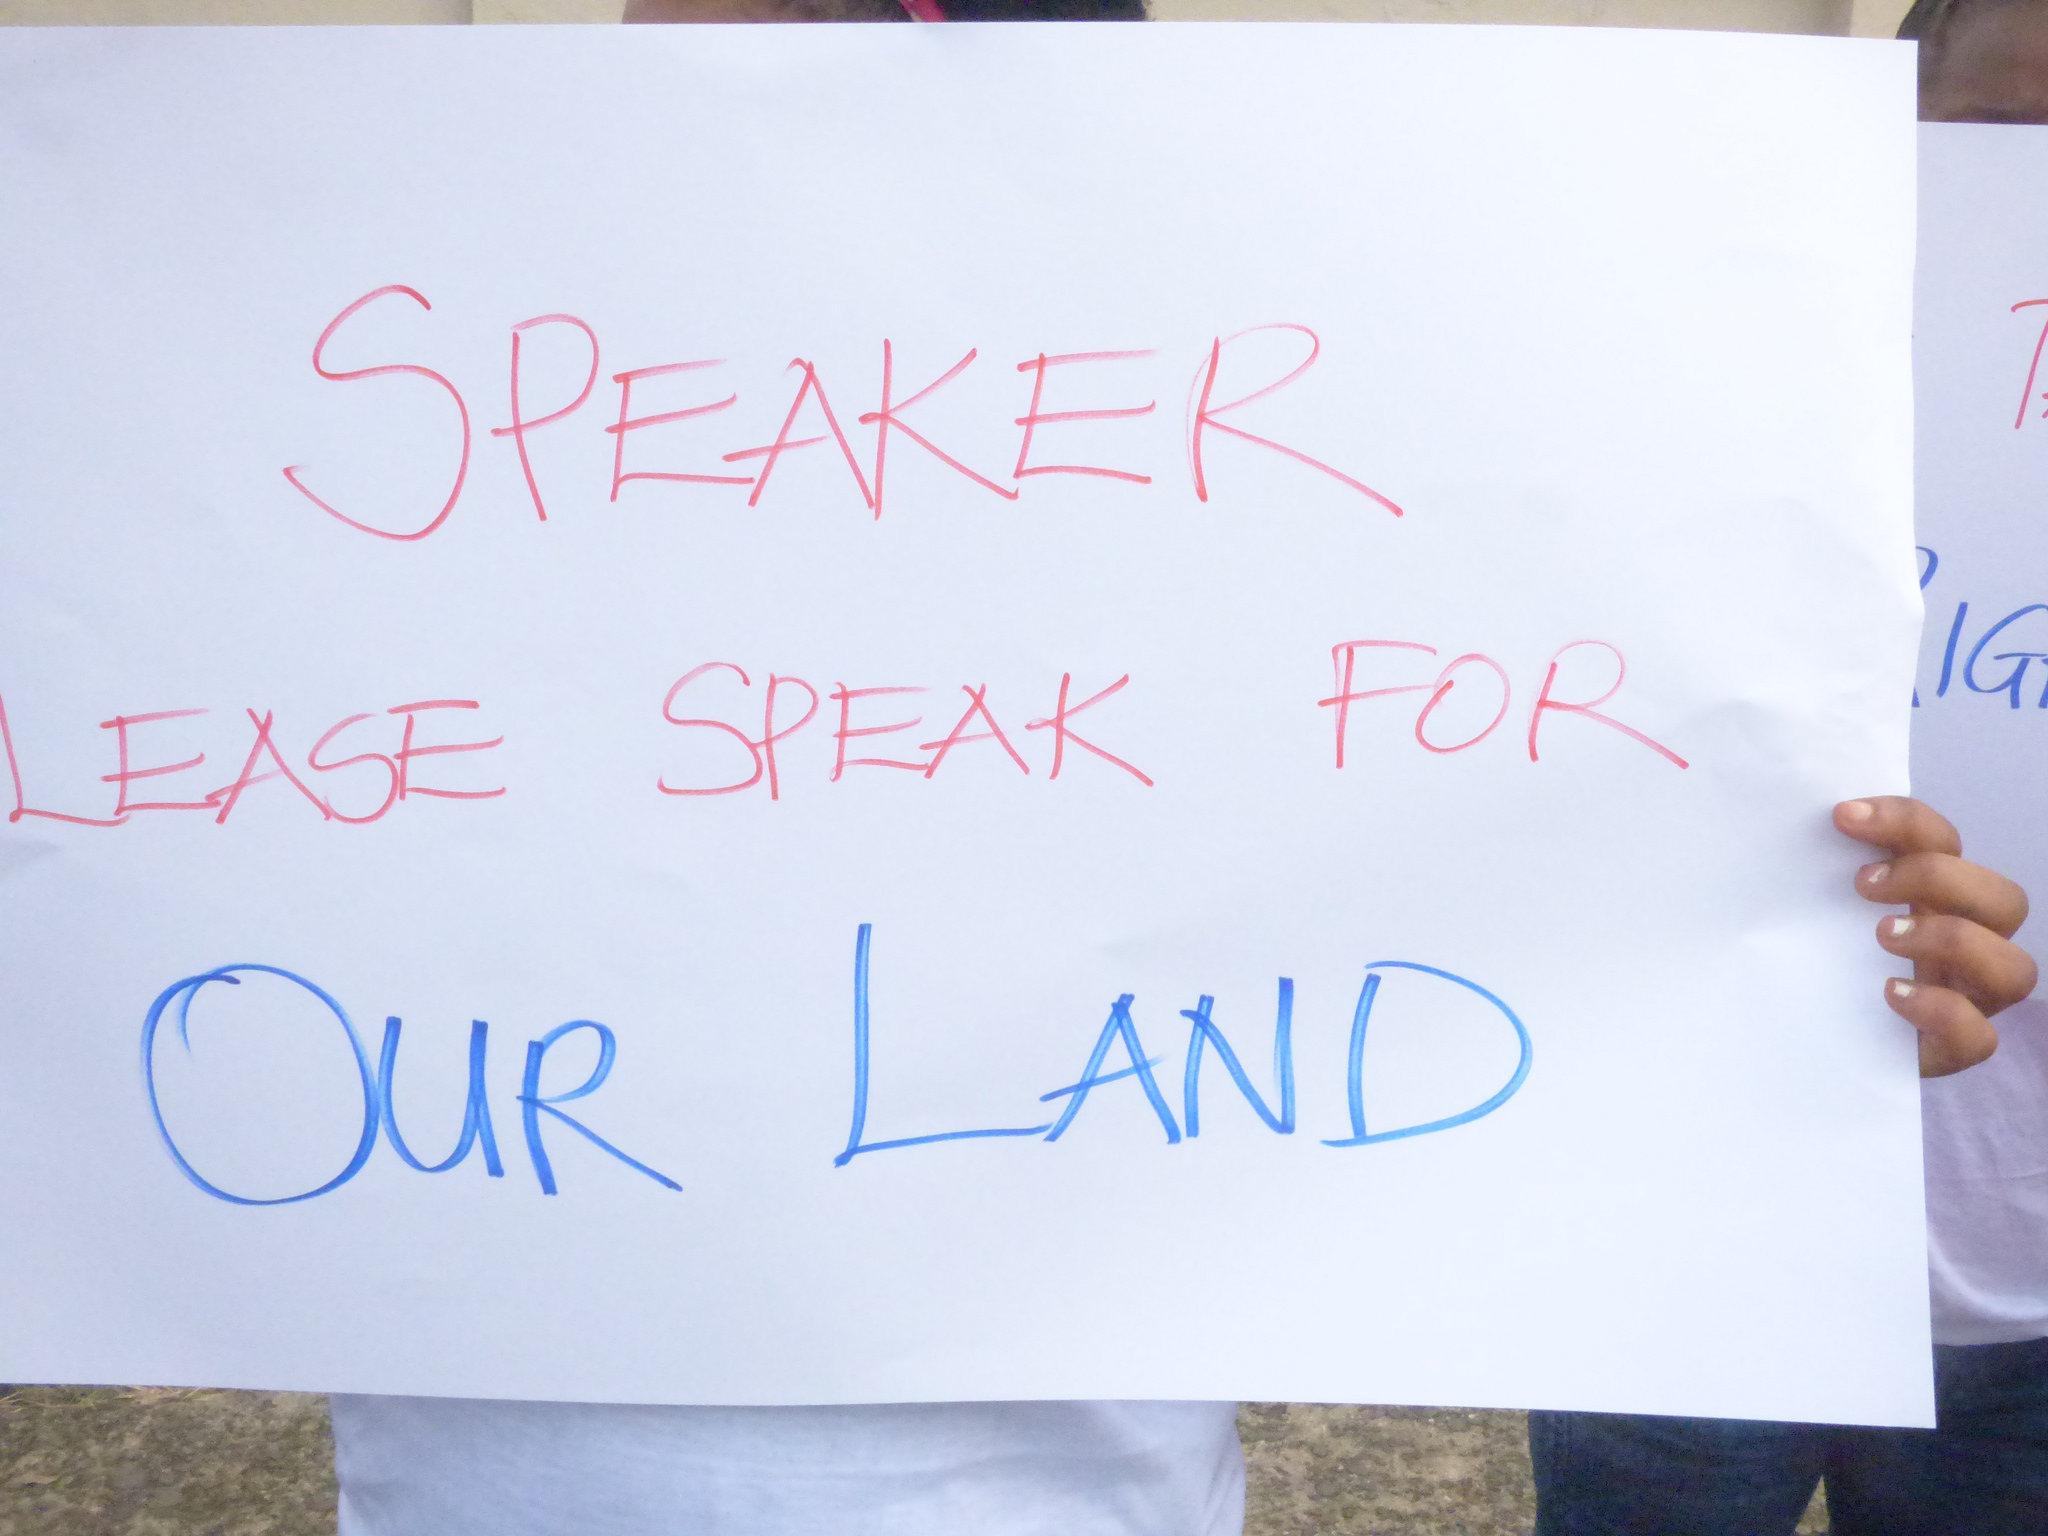 SPEAKER
LEASE SPEAK FOR
OUR LAND
RIG